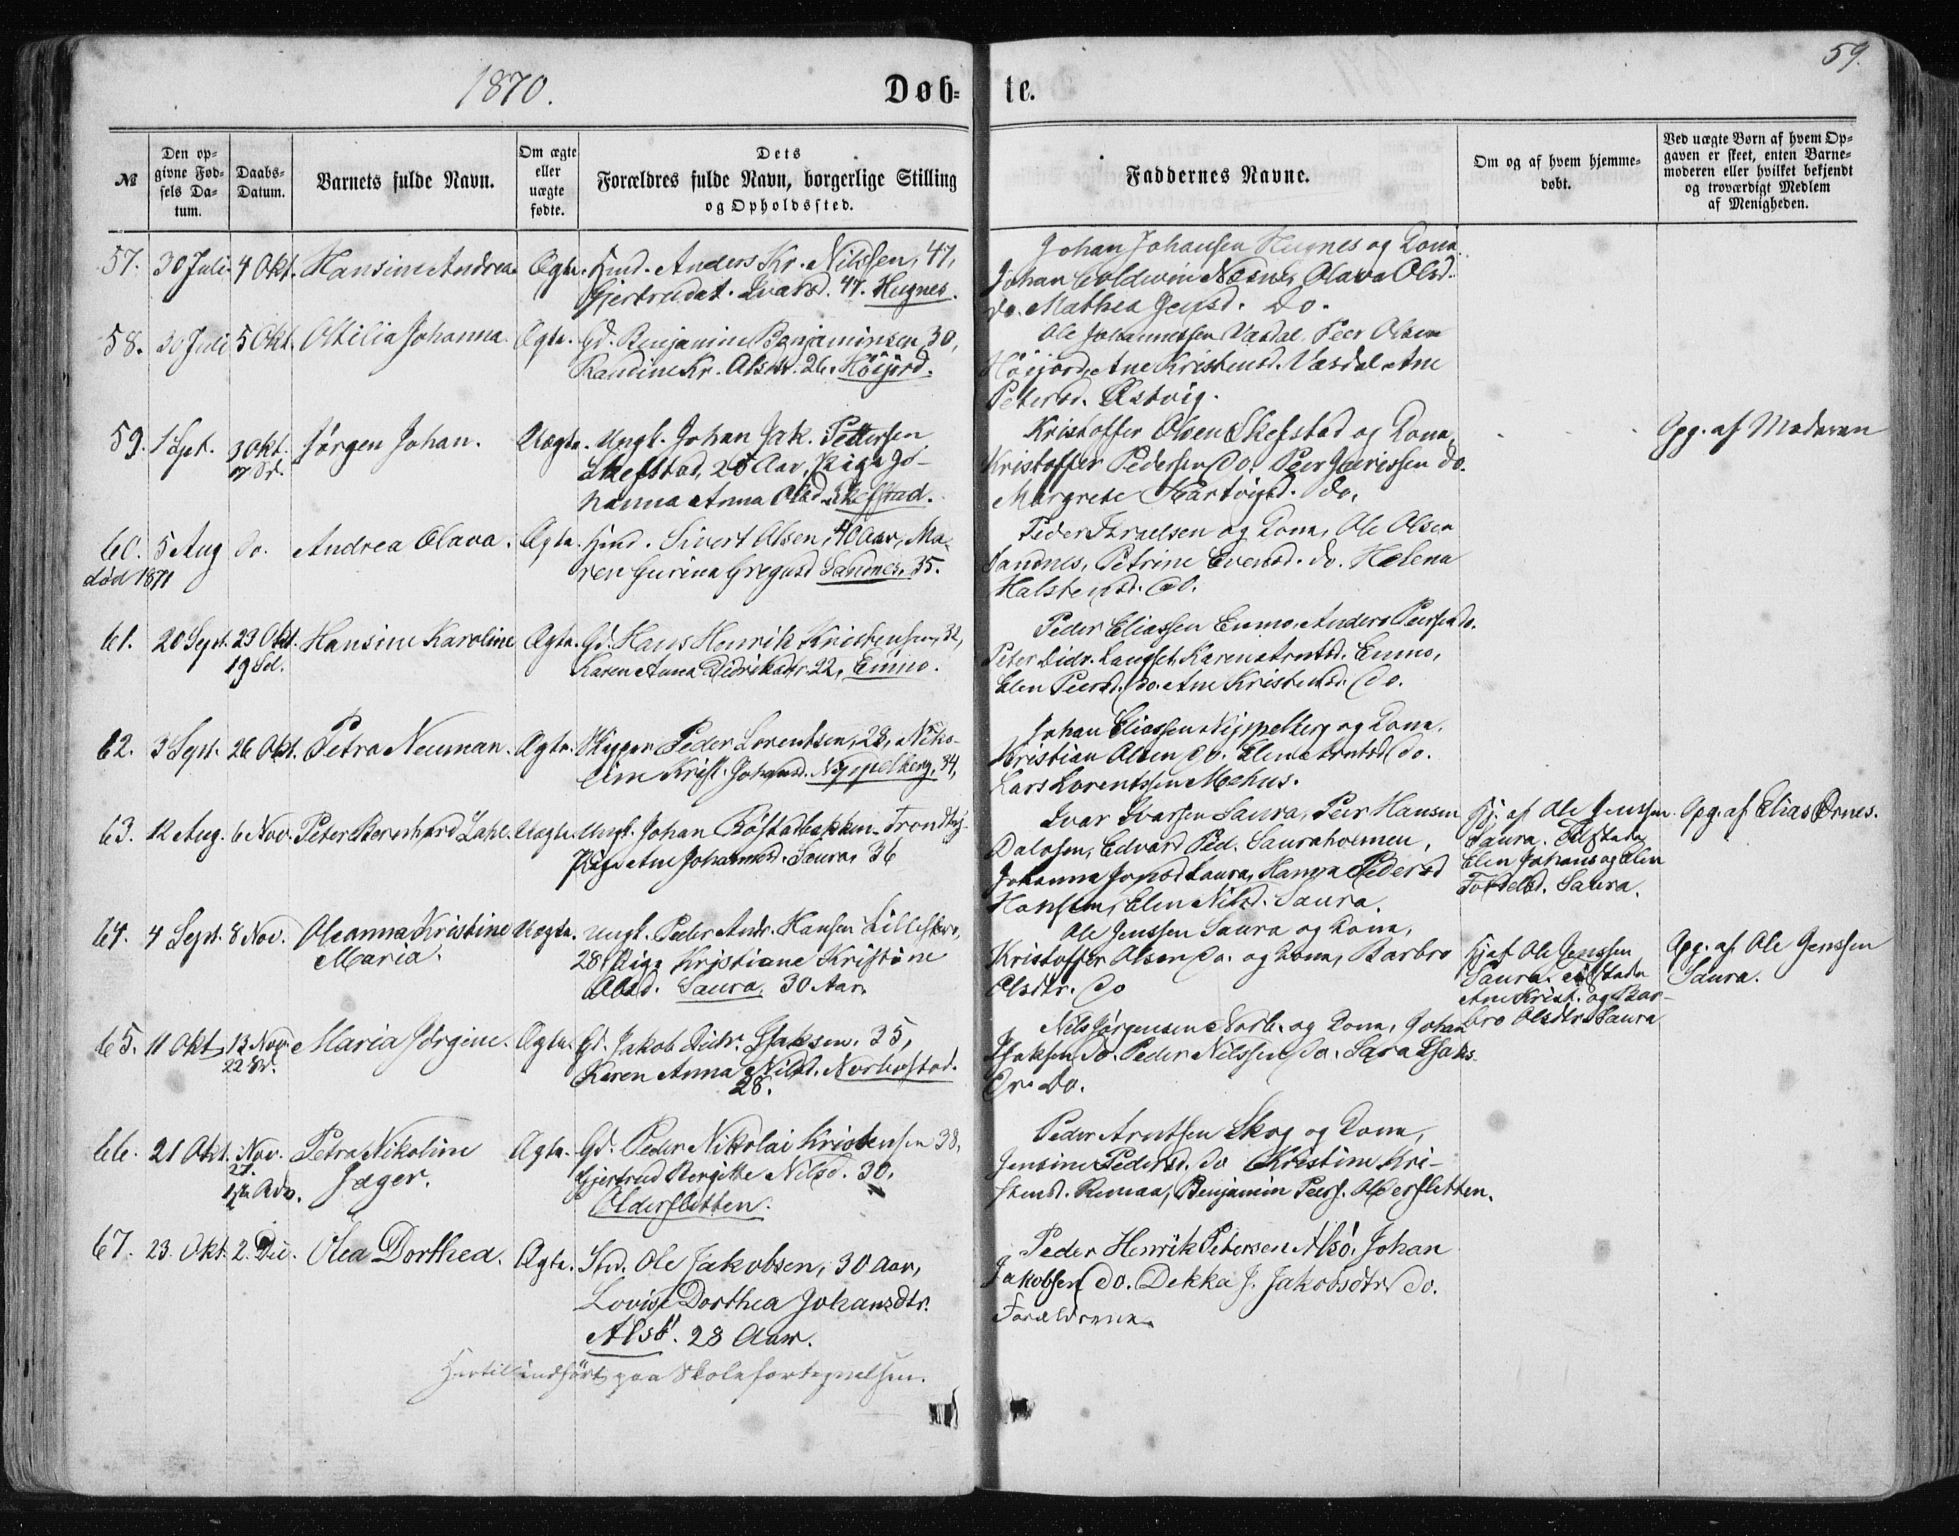 1870.
Døb-
te.
59.
№
Den op-
givne Fød-
sels Da-
tum.
Daabs-
Datum.
Barnets fulde Navn.
Om ægte
eller
uægte
fødte.
Dets
Forældres fulde Navn, borgerlige Stilling
og Opholdssted.
Faddernes Navne.
Om og af hvem hjemme-
døbt.
Ved uægte Børn af hvem Op-
gaven er skeet, enten Barne-
moderen eller hvilket bekjendt
og troværdigt Medlem
af Menigheden.
57. 30 Juli 4 Okt. Hansine Andrea Ægte. Hmd. Anders Kr. Nilssen, 47,
Ivarsd. 47. Hugnes.
Johan Johansen Hugnes og Kona
Johan Næsne, Olava Olsd.
do. Mathea Jensd. Do.
58. 30 Juli 5 Okt. Ottilia Johanna. Ægte. Gd. Benjamin Benjaminsen 30,
Randine Kr. Olsdtr. 26. Høijord.
Ole Johannessen Væsdal, Peer Olsen
Høijord, Ane Kristensd. Væsdal Ane
Petersd. Æstvig.
59. 1 Sept. 9 Okt. Jørgen Johan. Uægte. Ungk. Johan Jak. Pettersen
17 Sd.
Skefstad, 28 Aar, Pige Jo-
hanna Anna Olsd. Skefstad.
Kristoffer Olsen Skefstad og Kona,
Kristoffer Pedersen Do. Peer do.
Margrete Hartvigsd. Do.
Opg. af Moderen
60. 5 Aug do. Andrea Olava. Ægte. Hmd. Sivert Olsen, 40 Aar, Ma-
død 1871
ren Gurina Gregusd Sandnes. 35.
Peder Israelsen og Kona, Ole Olsen
Sandnes, Petrine Evensd. do. Helena
Halstensd. do.
61. 20 Sept. 23 Okt. Hansine Karoline Ægte. Gd. Hans Henrik Kristensen, 32,
19 Sd.
Karen Anna Didriksdtr. 22, Enmo.
Peder Eliassen Enmo, Anders Peersen do.
Peter Didr. Langset, Karen Arntsd. Enmo,
Elen Peersd. do. Ane Kristensd. Do.
62. 3 Sept. 26 Okt. Petra Neuman. Ægte. Skipper Peder Lorentsen, 28, Niko-
line Krist. Johansd. Nyppelberg, 34,
Johan Eliassen Nippelberg og Kona,
Kristian Olsen Do. Elen Arntsd. Do.
Lars Lorentssen Mehus.
63. 12 Aug. 6 Nov. Peter Bernhard Zahl. Uægte. Ungk. Johan Trondhj-
Pige Ane Johannsd. Saura, 36
Ivar Ivarsen Saura, Peer Hansen
Dalosen, Edvard Ped. Sauraholmen,
Johanna Jonsd. Saura, Hanna Pedersd
Elen Nilsd. Saura.
Hj. af Ole Jenssen
Saura. Tilstede
Elen Johans og Elin
Saura.
Opg. af Elias Ørnes.
64. 4 Sept. 8 Nov. Oleanna Kristine Uægte. Ungk. Peder Andr. Hansen
Maria.
28, Pige Kristiane Kristine
Olsd. Saura, 30 Aar.
Ole Jenssen Saura og Kona,
Kristoffer Olsen Do. og Kona, Barbro
Olsdtr. Do
Hj. af Ole Jenssen
Saura. tilstede
Ane Krist. og Bar-
bro Olsdtr. Saura
Opg. af Ole Jenssen
Saura.
65. 11 Okt. 13 Nov. Maria Jørgine. Ægte. Gd. Jakob Didr. Isaksen. 35,
22 Sd.
Karen Anna Nilsd.
28.
Nils Jørgensen og Kona, Johan
Isaksen do. Peder Nilssen Do. Sara Isaks-
Dr. Do.
66. 21 Okt. Nov. Petra Nikoline Ægte. Gd. Peder Nikolai Kristensen 38,
27.
1 Adv. Jæger.
Gjertrud Bergitte Nilsd. 30.
Oldersletten.
Peder Arntsen Skog og Kona,
Jensine Pedersd. do Kristine Kri-
stensd. Remaa, Benjamin Peers. Oldersletten.
67. 23. Okt. 2. Dec. Olea Dorthea. Ægte. Std. Ole Jakobsen, 30 Aar,
Lovise Dorthea Johansdtr.
Alsø. 28 Aar.
Peder Henrik Petersen Alsø. Johan
Jakobsen do. Dekka J. Jakobsdtr. do.
Forældrene.
Hertil indført paa Skolefortegnelsen.